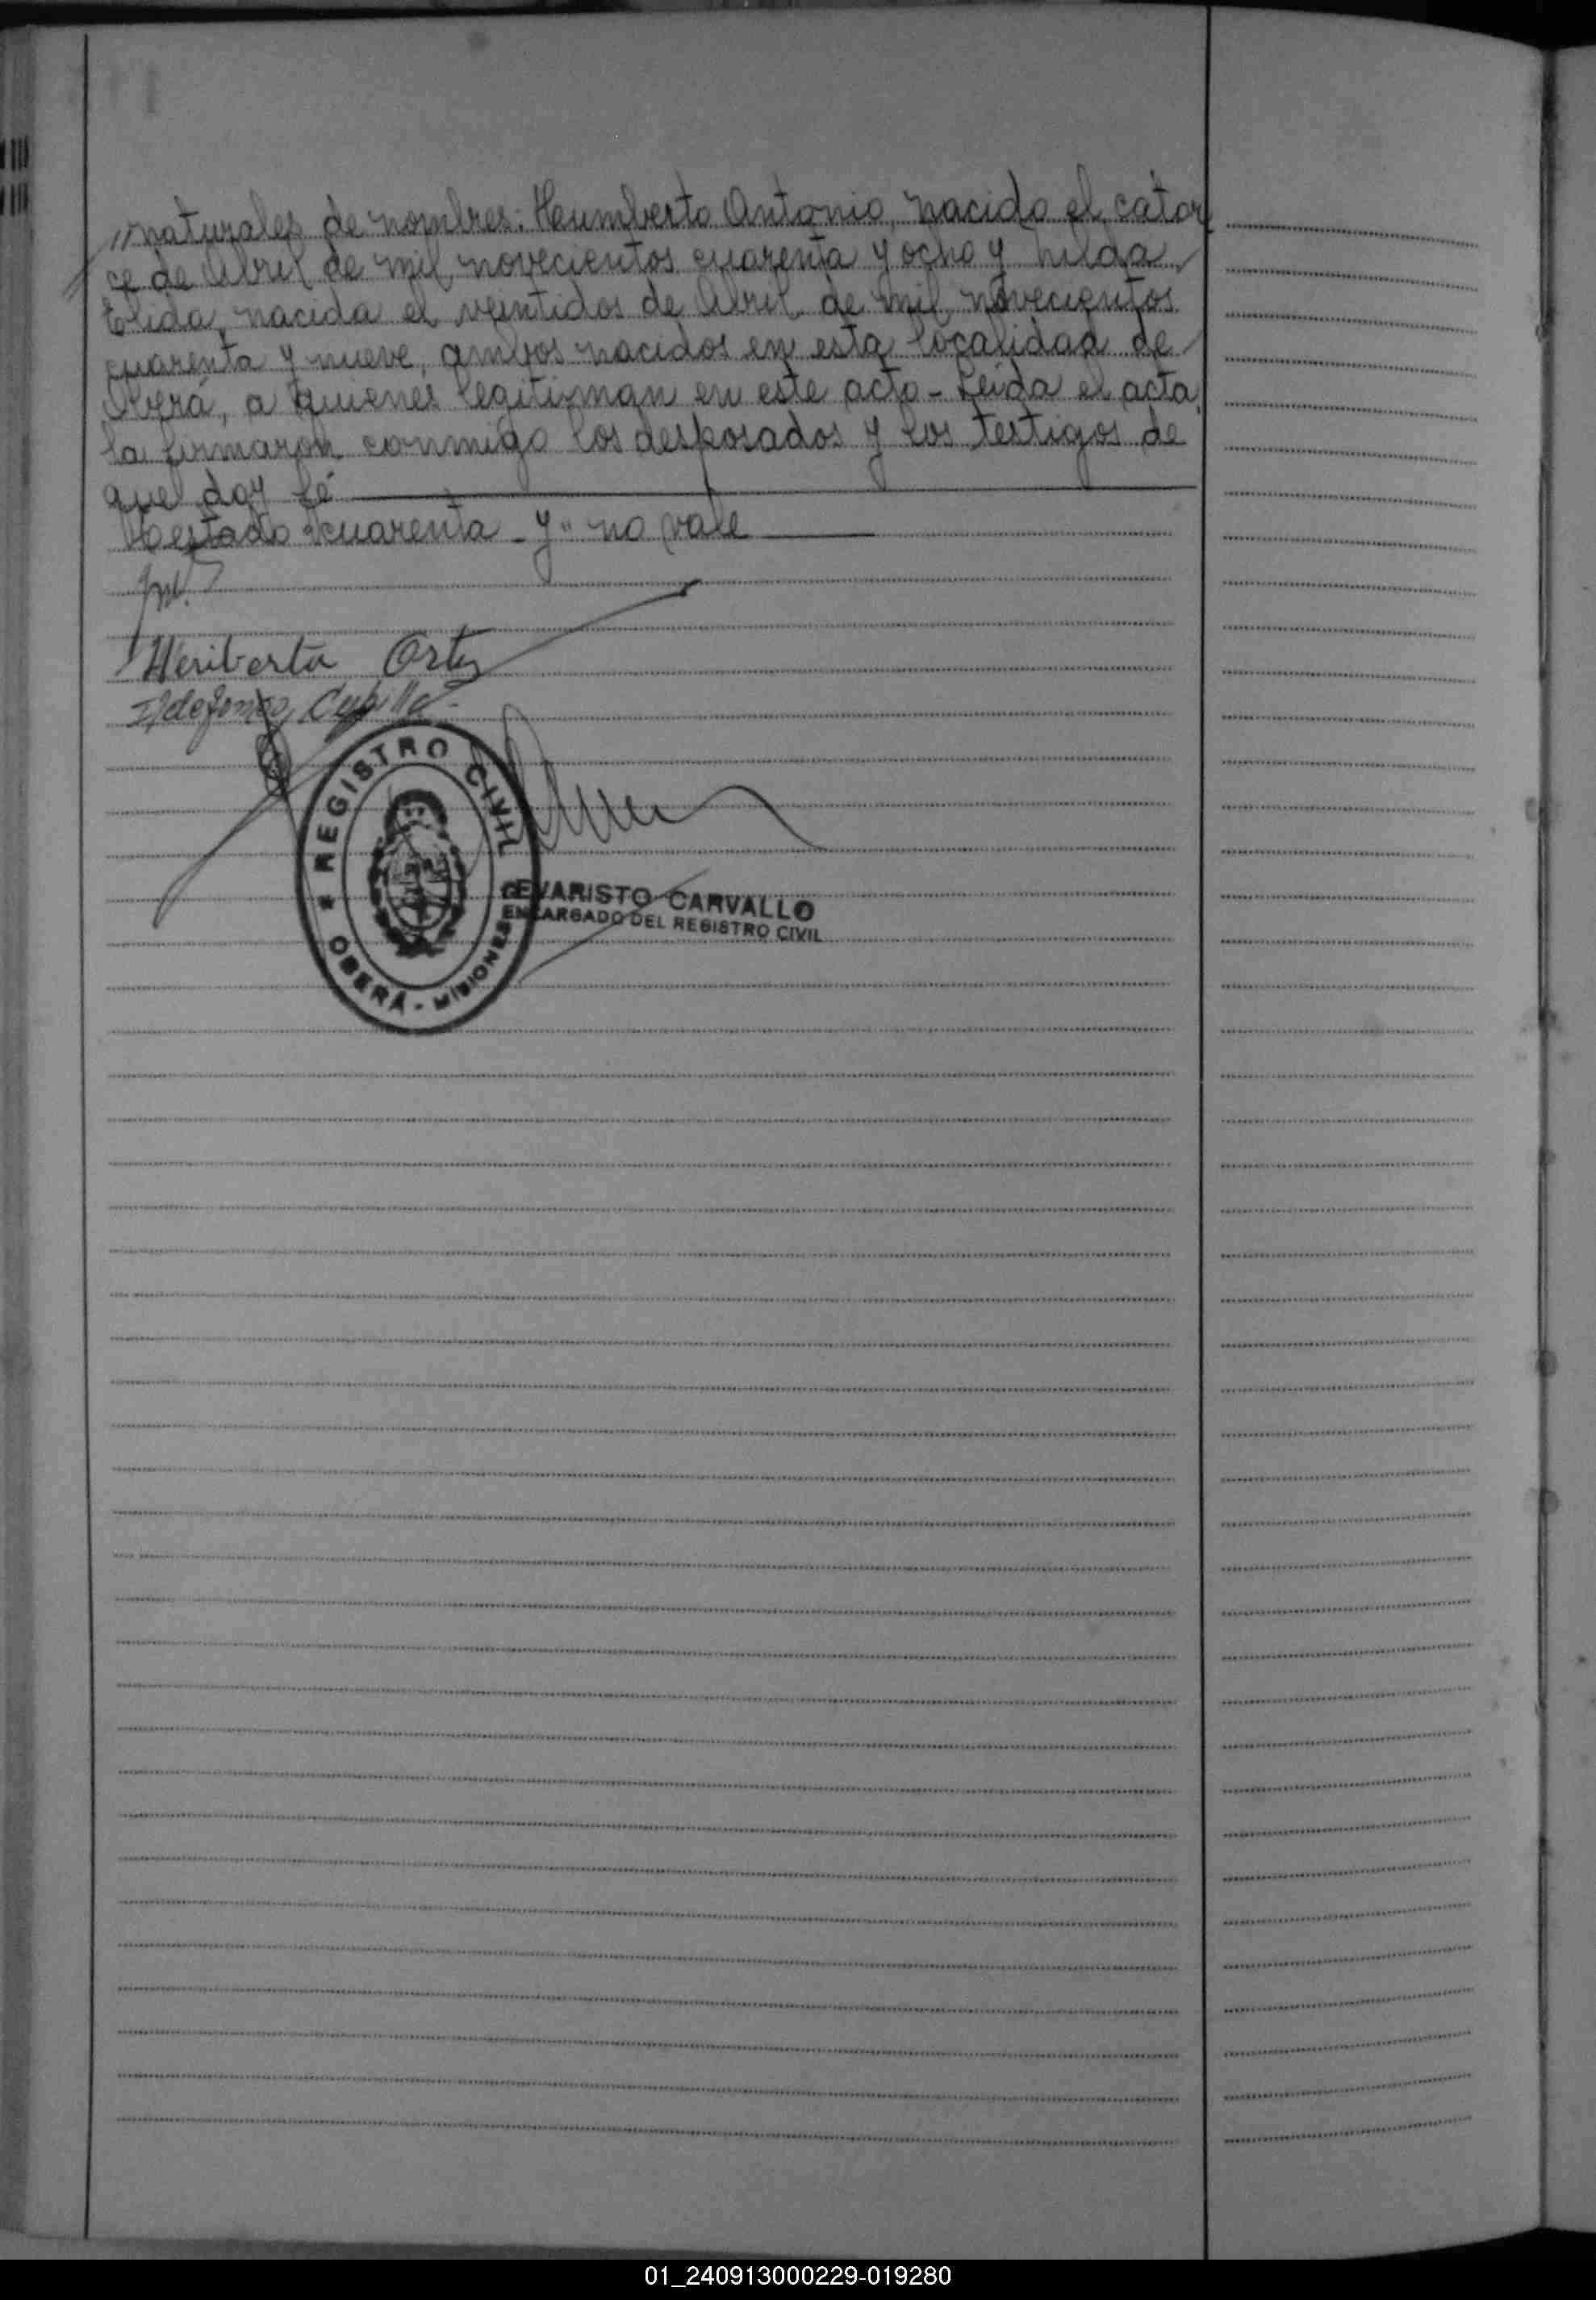 //naturales de nombres: Heumberto Antonio, nacido el cator
ce de Abril de mil novecientos cuarenta y ocho y hilda
Elida, nacida el veintidos de Abril de mil novecientos
cuarenta y nueve, ambos nacidos en esta localidad de
Oberá, a quienes legitiman en este acto - Leida el acta,
la firmaron conmigo los desposados y los testigos de
que doy fé
Testado "cuarenta - y" no vale
Heriberta Ortiz
Ildefonso Cubilla
REGISTRO CIVIL
OBERÁ - MISIONES
EVARISTO CARVALLO
ENCARGADO DEL REGISTRO CIVIL
01_240913000229-019280